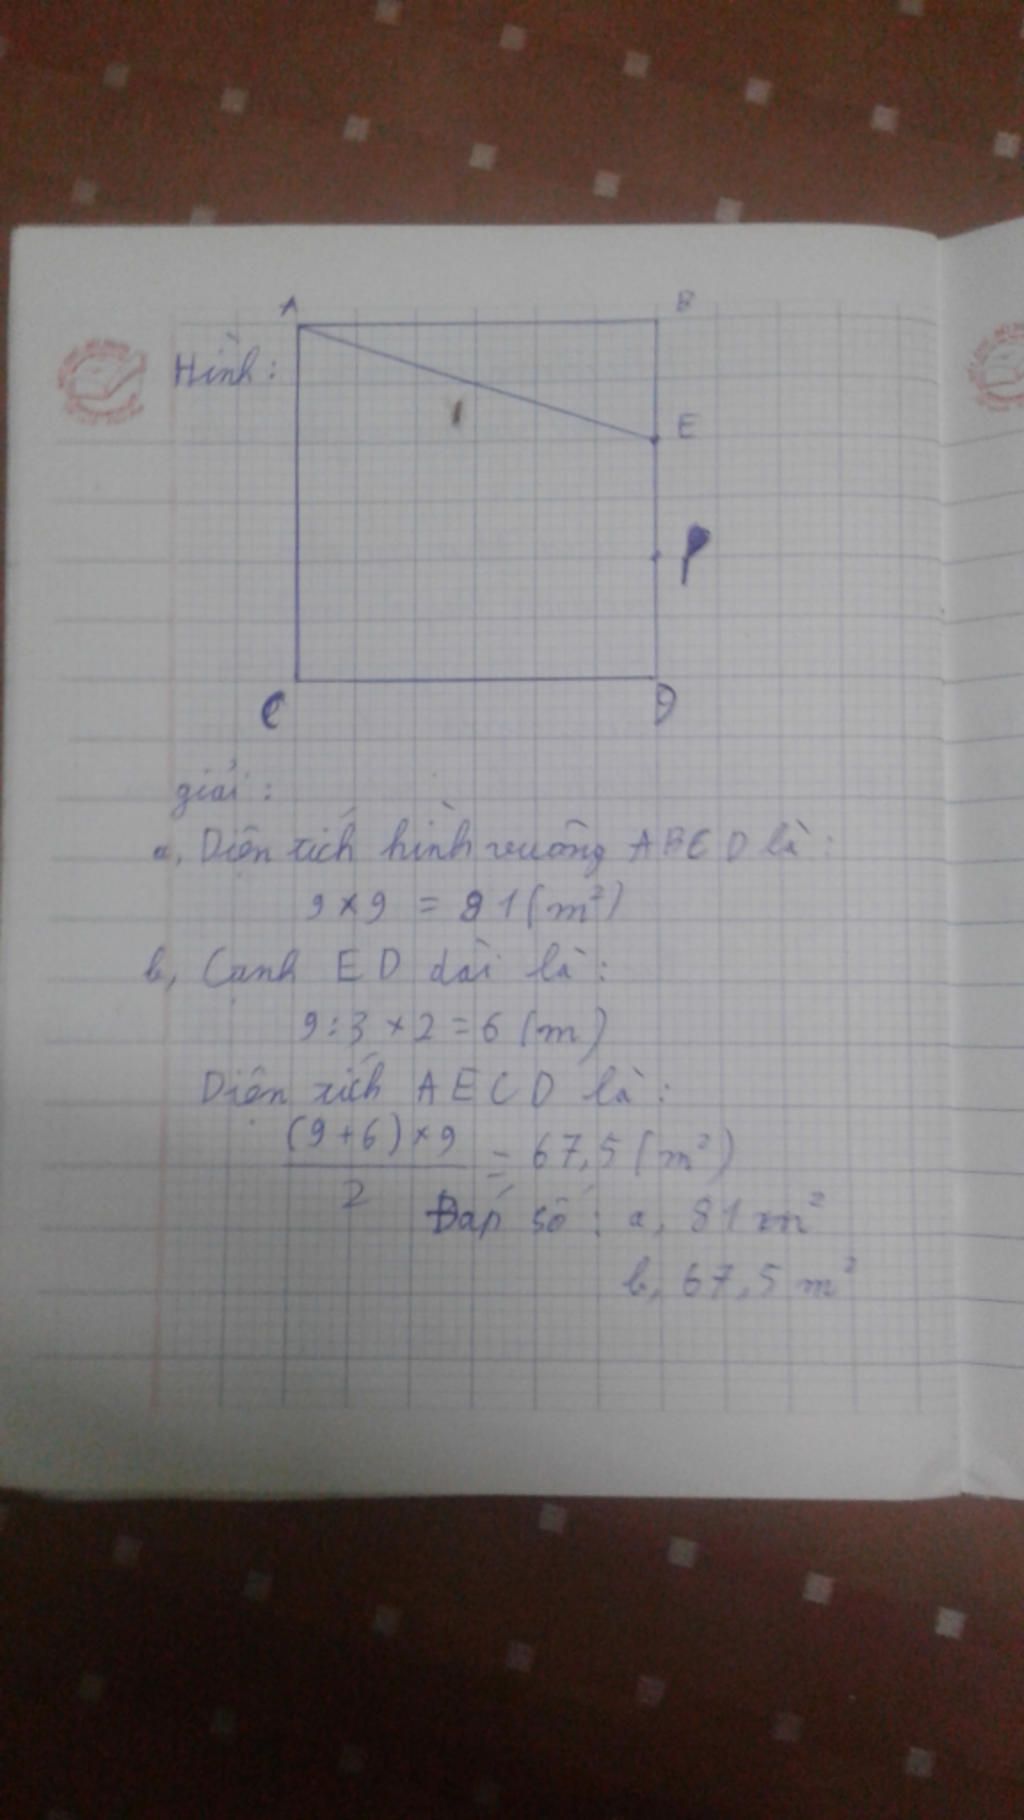 A
B
Hình:
E
P
C
D
giải:
a, Diện tích hình vuông ABCD là:
9 × 9 = 81 (m²)
b, Cạnh ED dài là:
9 : 3 × 2 = 6 (m)
Diện tích AECD là:
(9 + 6) × 9
= 67,5 (m²)
2
Đáp số: a, 81 m²
b, 67,5 m²